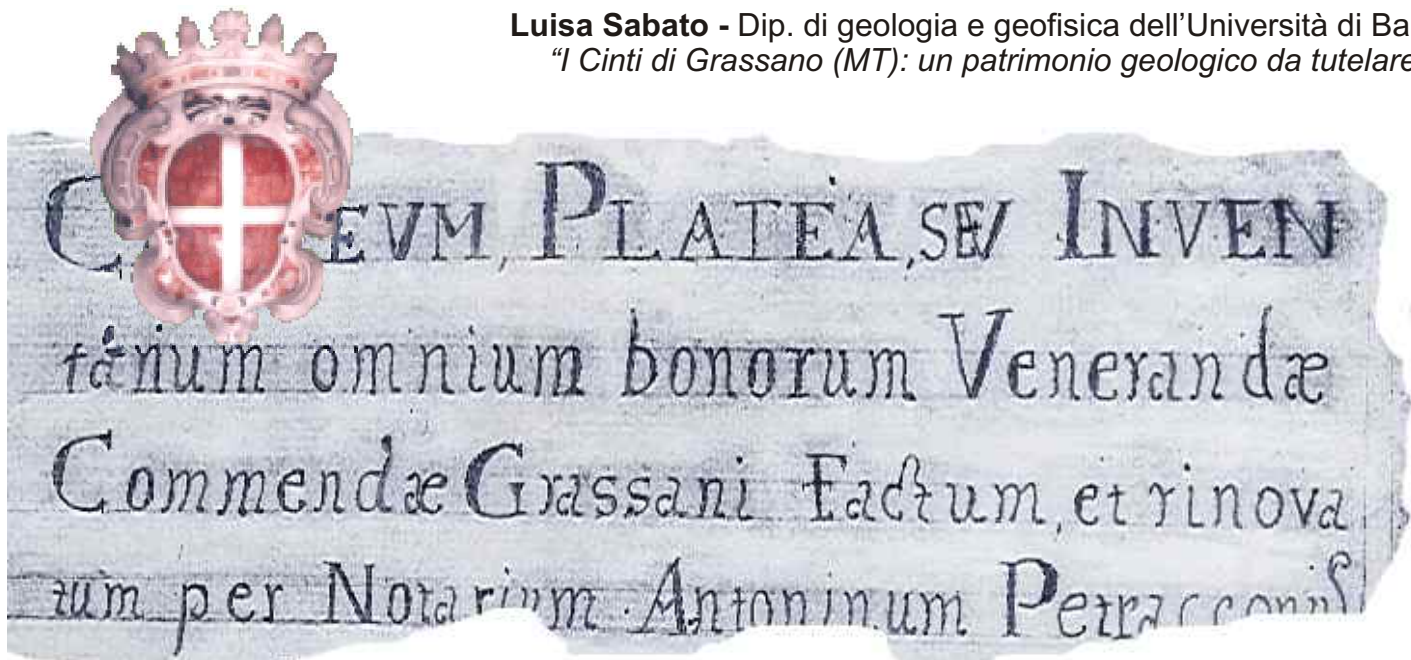 Luisa Sabato - Dip. di geologia e geofisica dell'Università di Ba
"I Cinti di Grassano (MT): un patrimonio geologico da tutelare
EVM, PLATEA, SEV INVEN
tarium omnium bonorum Venerandæ
Commendæ Grassani Factum, et rinova
tum per Notarium Antoninum